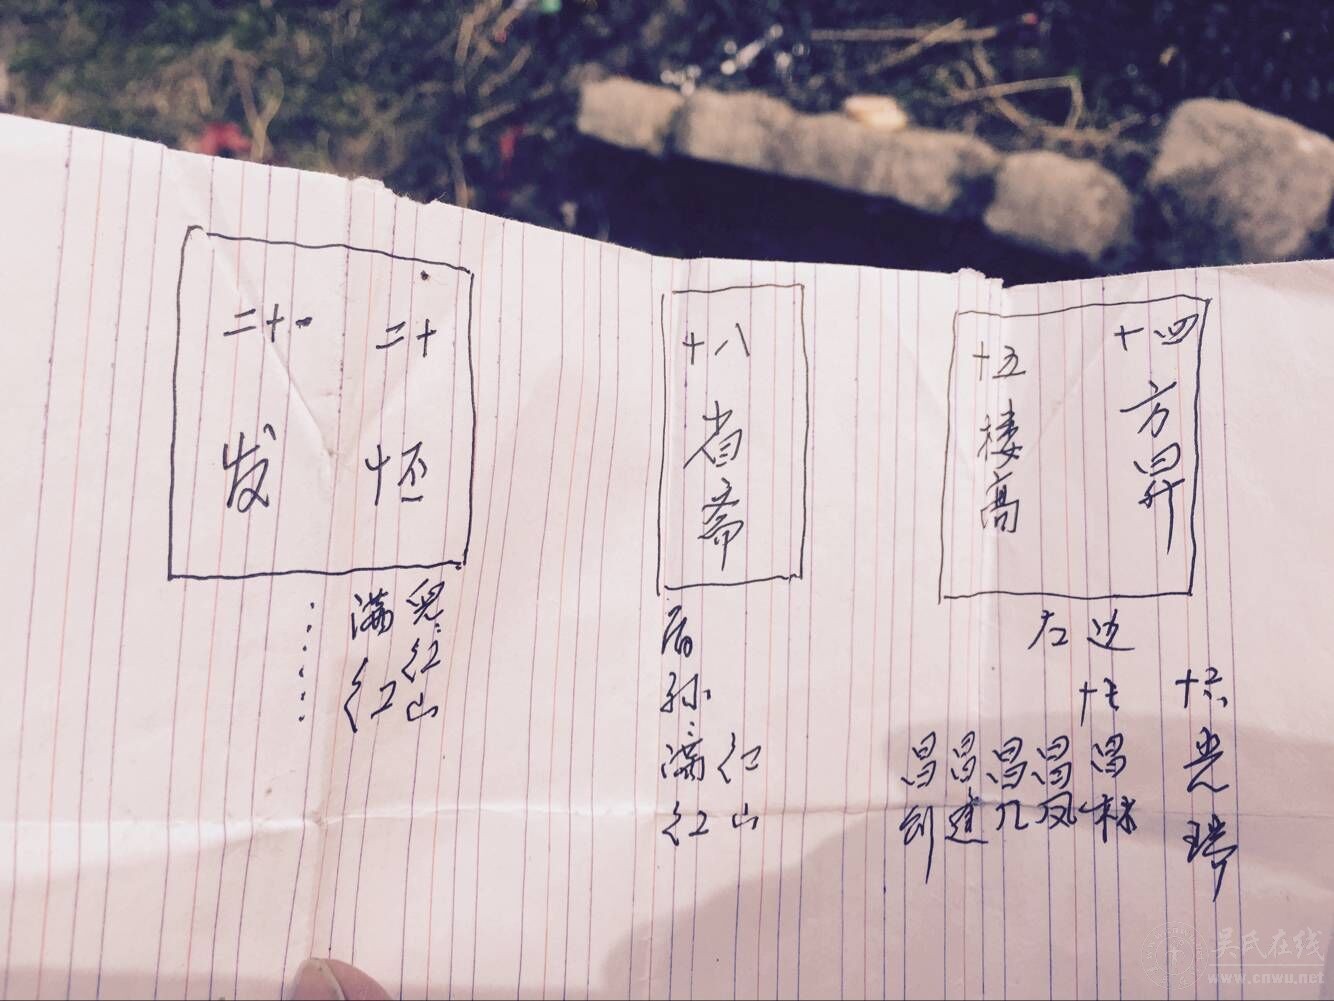 十四
方昇
十五
楼高
左边
十六
光瑞
十七
昌林
昌凤
昌几
昌建
昌创
十八
省斋
后孙
红山
满红
二十
恒
二十一
发
红山
满红
吴氏在线
www.cnwu.net